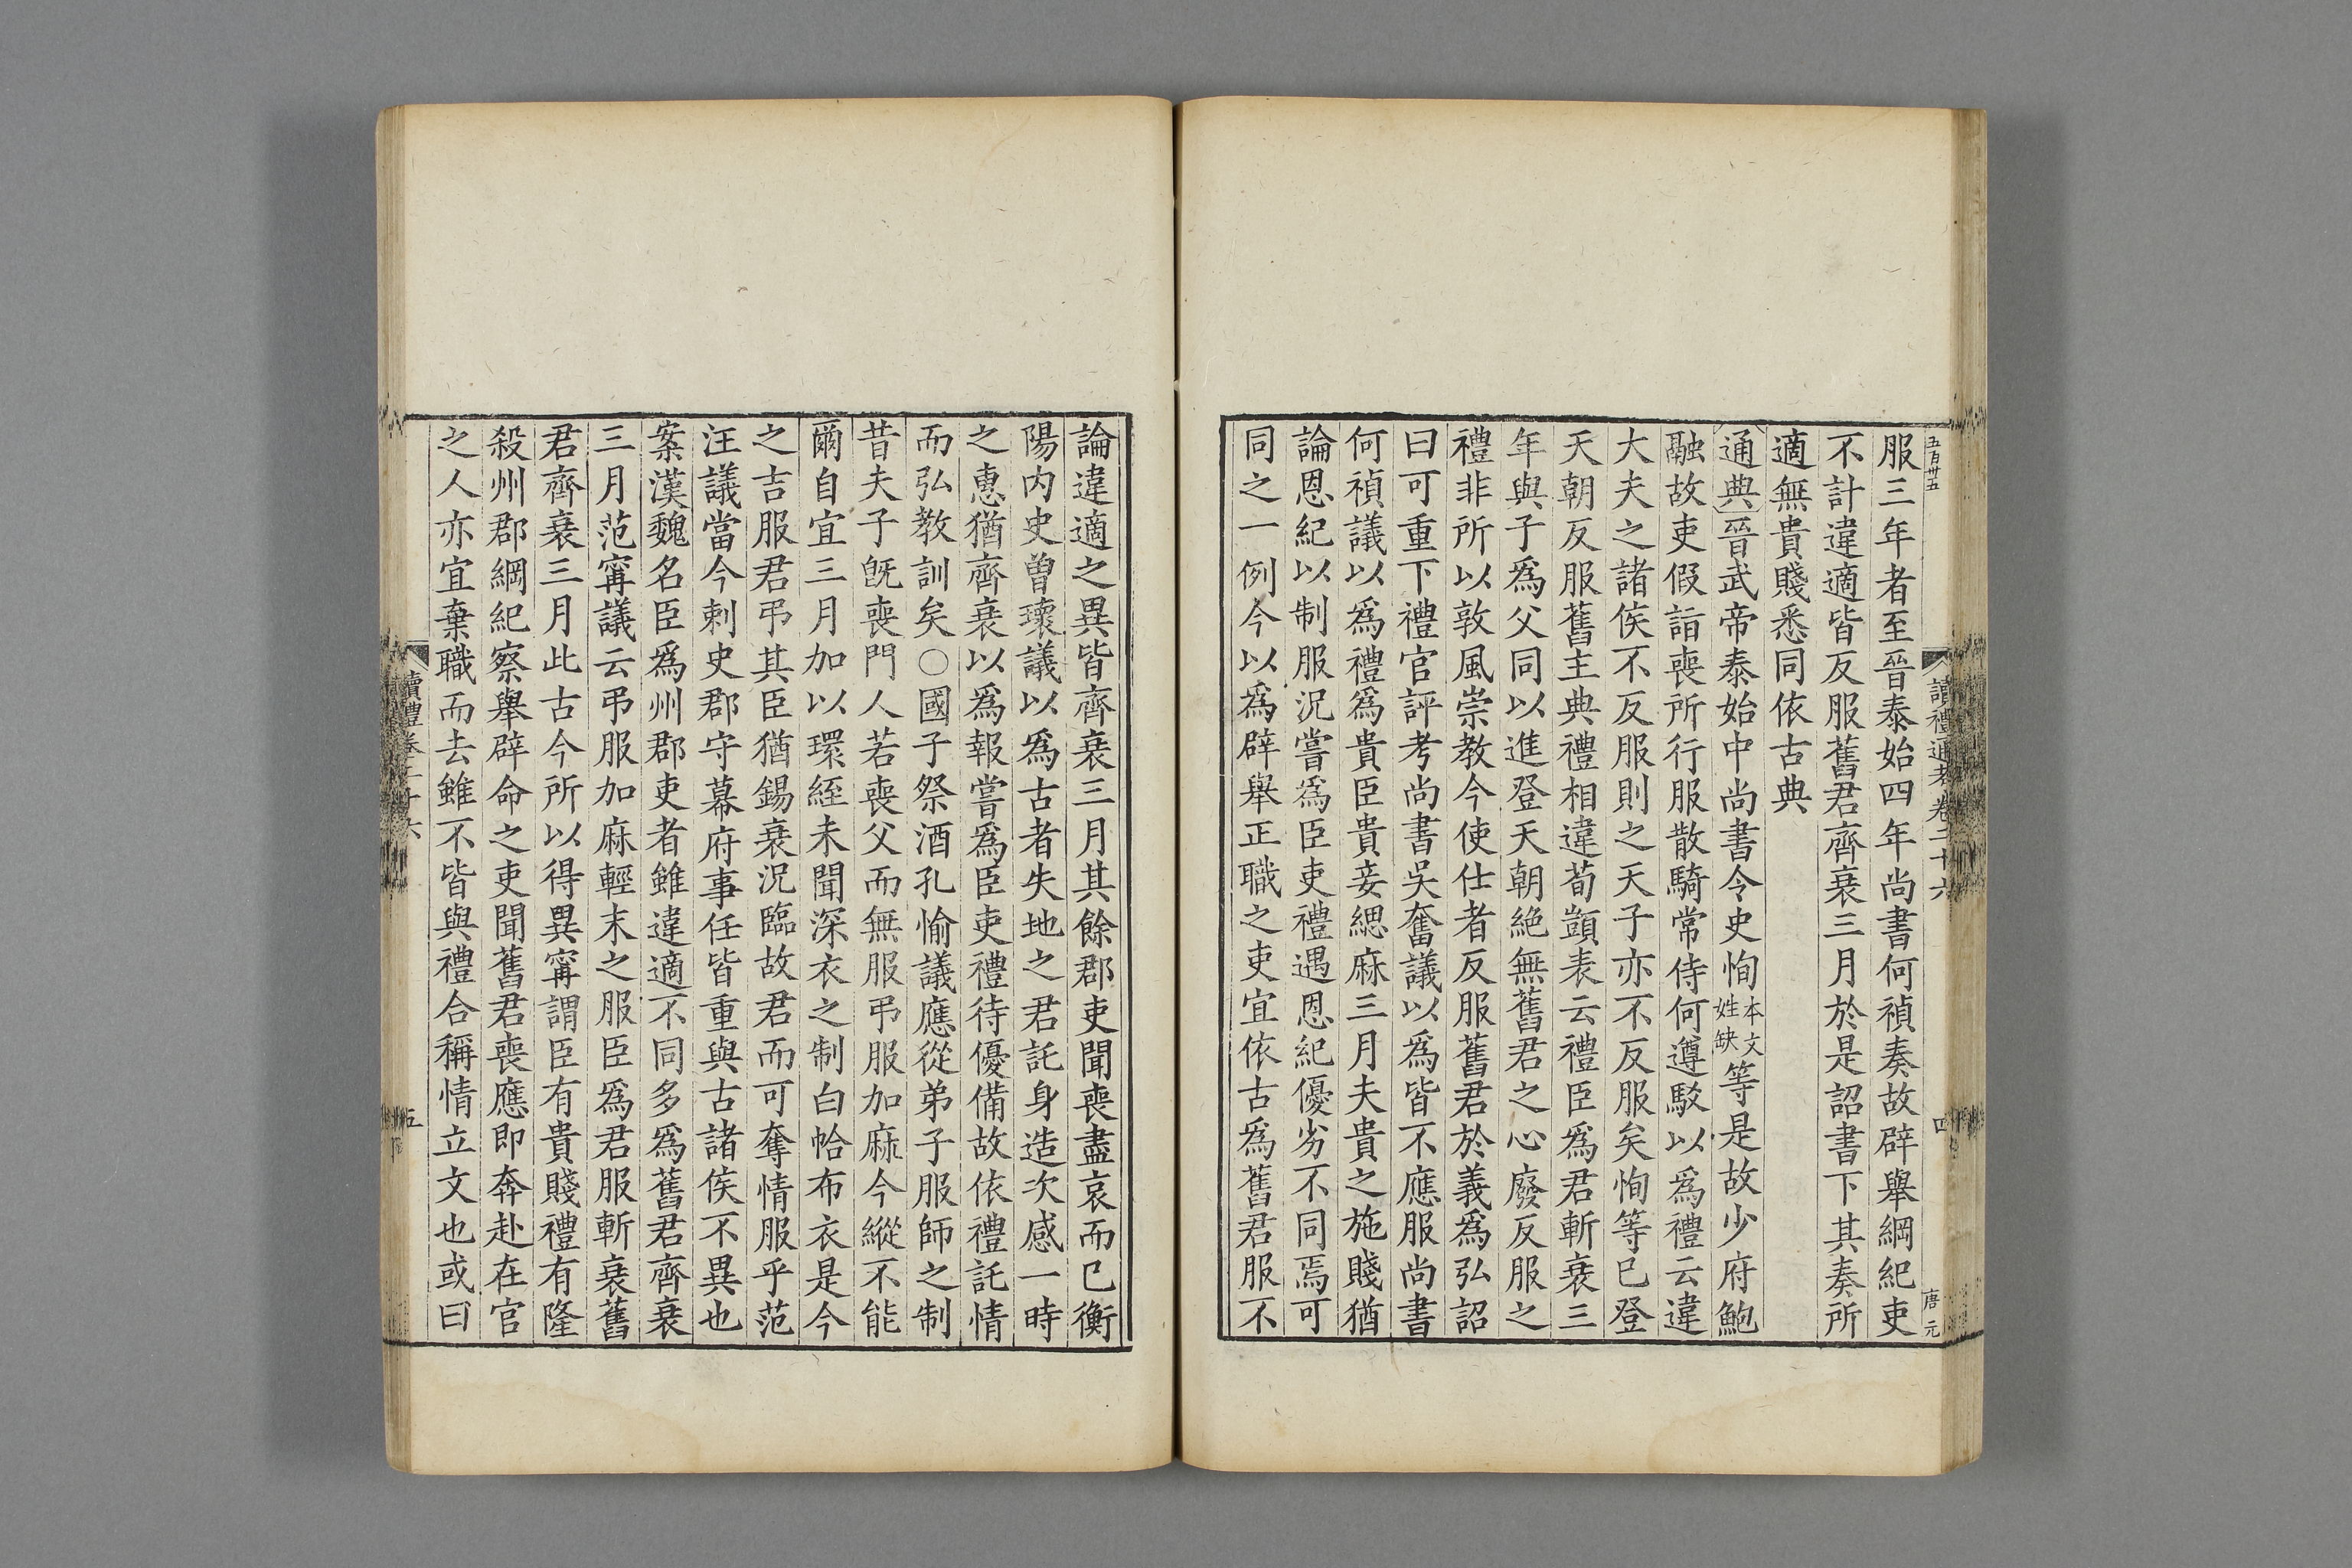 五百卅五
讀禮通考卷二十六
四
唐元
服三年者至晉泰始四年尚書何禎奏故辟舉綱紀吏
不計違適皆反服舊君齊衰三月於是詔書下其奏所
適無貴賤悉同依古典
通典晉武帝泰始中尚書令史恂本文姓缺等是故少府鮑
融故吏假詣喪所行服散騎常侍何遵駁以爲禮云違
大夫之諸侯不反服則之天子亦不反服矣恂等已登
天朝反服舊主典禮相違荀顗表云禮臣爲君斬衰三
年與子爲父同以進登天朝絶無舊君之心廢反服之
禮非所以敦風崇教今使仕者反服舊君於義爲弘詔
曰可重下禮官評考尚書吳奮議以爲皆不應服尚書
何禎議以爲禮爲貴臣貴妾緦麻三月夫貴之施賤猶
論恩紀以制服況嘗爲臣吏禮遇恩紀優劣不同焉可
同之一例今以爲辟舉正職之吏宜依古爲舊君服不
論違適之異皆齊衰三月其餘郡吏聞喪盡哀而已衡
陽内史曾瓌議以爲古者失地之君託身造次感一時
之惠猶齊衰以爲報嘗爲臣吏禮待優備故依禮託情
而弘教訓矣○國子祭酒孔愉議應從弟子服師之制
昔夫子旣喪門人若喪父而無服弔服加麻今縱不能
爾自宜三月加以環絰未聞深衣之制白帢布衣是今
之吉服君弔其臣猶錫衰況臨故君而可奪情服乎范
汪議當今刺史郡守幕府事任皆重與古諸侯不異也
案漢魏名臣爲州郡吏者雖違適不同多爲舊君齊衰
三月范甯議云弔服加麻輕末之服臣爲君服斬衰舊
君齊衰三月此古今所以得異甯謂臣有貴賤禮有隆
殺州郡綱紀察舉辟命之吏聞舊君喪應即奔赴在官
之人亦宜棄職而去雖不皆與禮合稱情立文也或曰
讀禮卷二十六
五